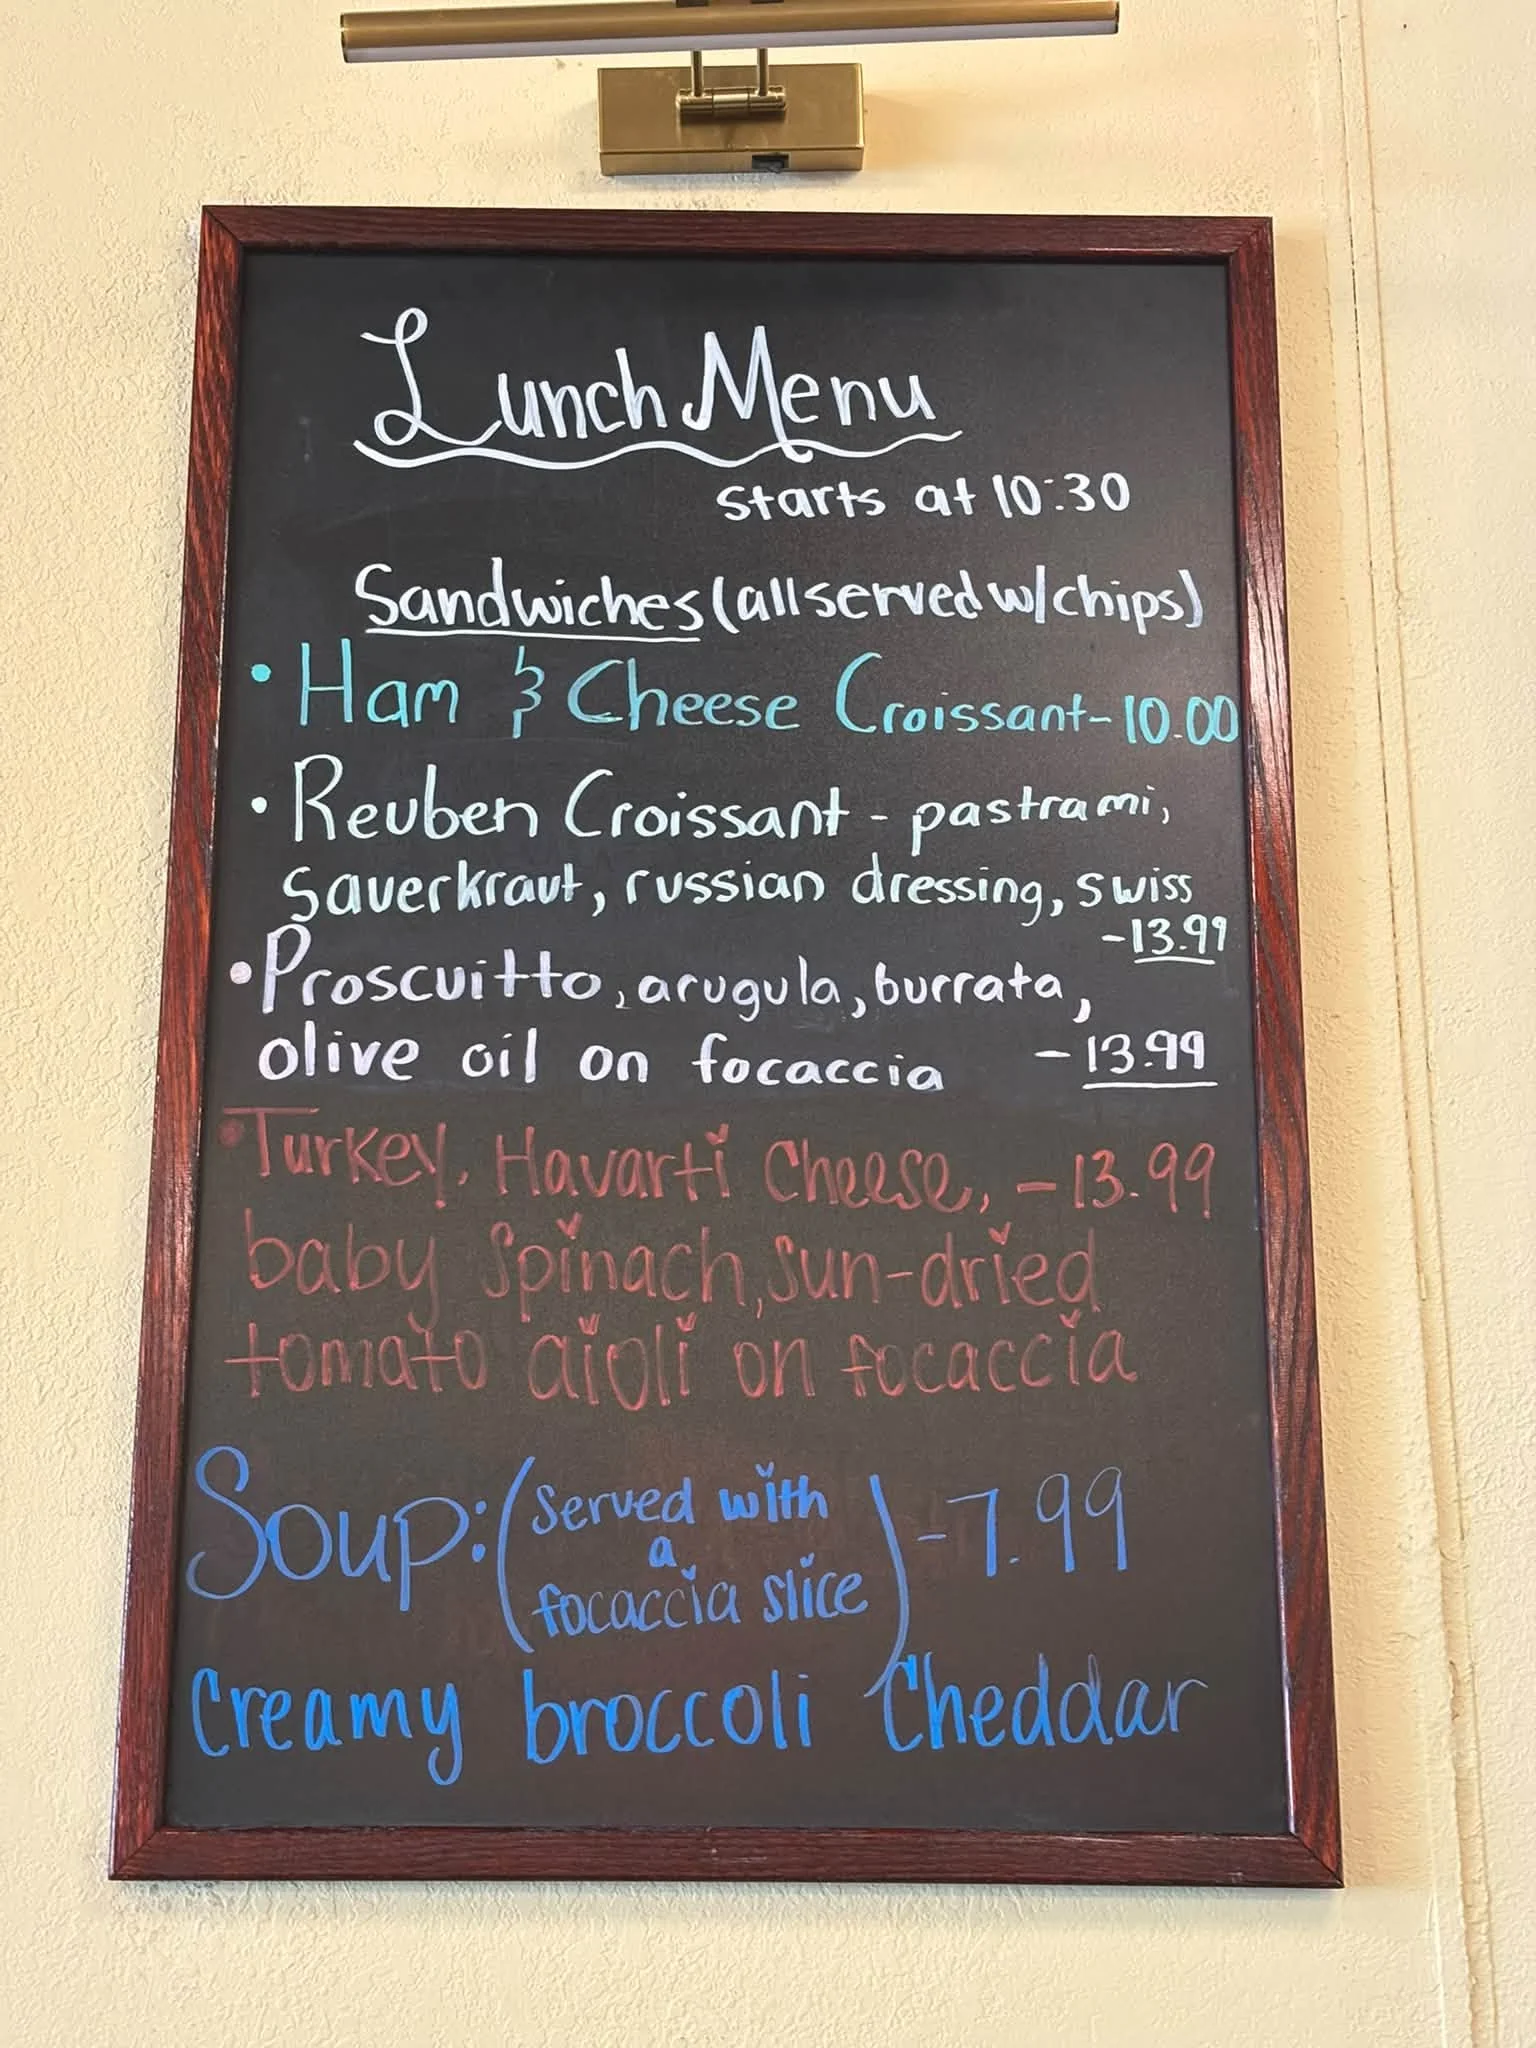 Lunch Menu
starts at 10:30
Sandwiches (all served w/chips)
• Ham & Cheese Croissant - 10.00
• Reuben Croissant - pastrami,
saverkraut, russian dressing, swiss
- 13.99
• Proscuitto, arugula, burrata,
olive oil on focaccia - 13.99
• Turkey, Havarti Cheese, - 13.99
baby spinach, sun-dried
tomato aioli on focaccia
Soup: (served with
a
focaccia slice) - 7.99
Creamy broccoli Cheddar